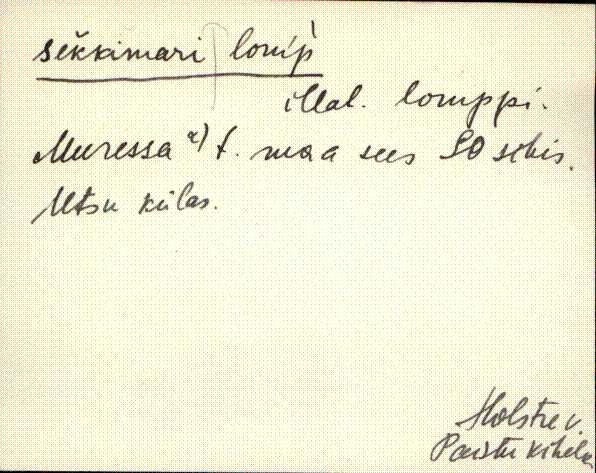 sekkimari lomp̀
illat. lomppi.
Muressa a) t. maa sees SO sihis.
Utsu külas.
Holstre v.
Paistu kihelk